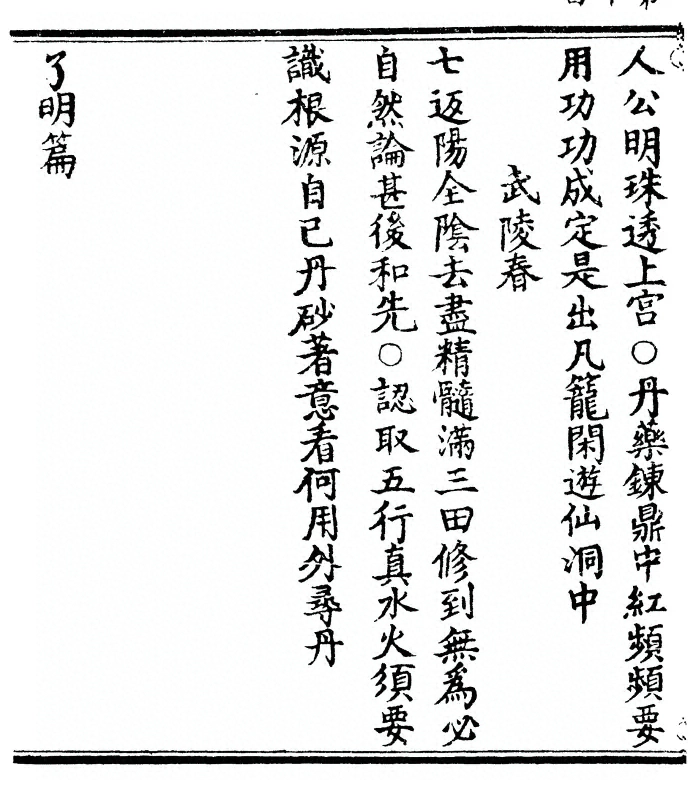 人公明珠透上宮○丹藥鍊鼎中紅頻頻要
用功功成定是出凡籠閑遊仙洞中
武陵春
七返陽全陰去盡精髓滿三田修到無爲必
自然論甚後和先○認取五行真水火須要
識根源自己丹砂著意看何用外尋丹
了明篇